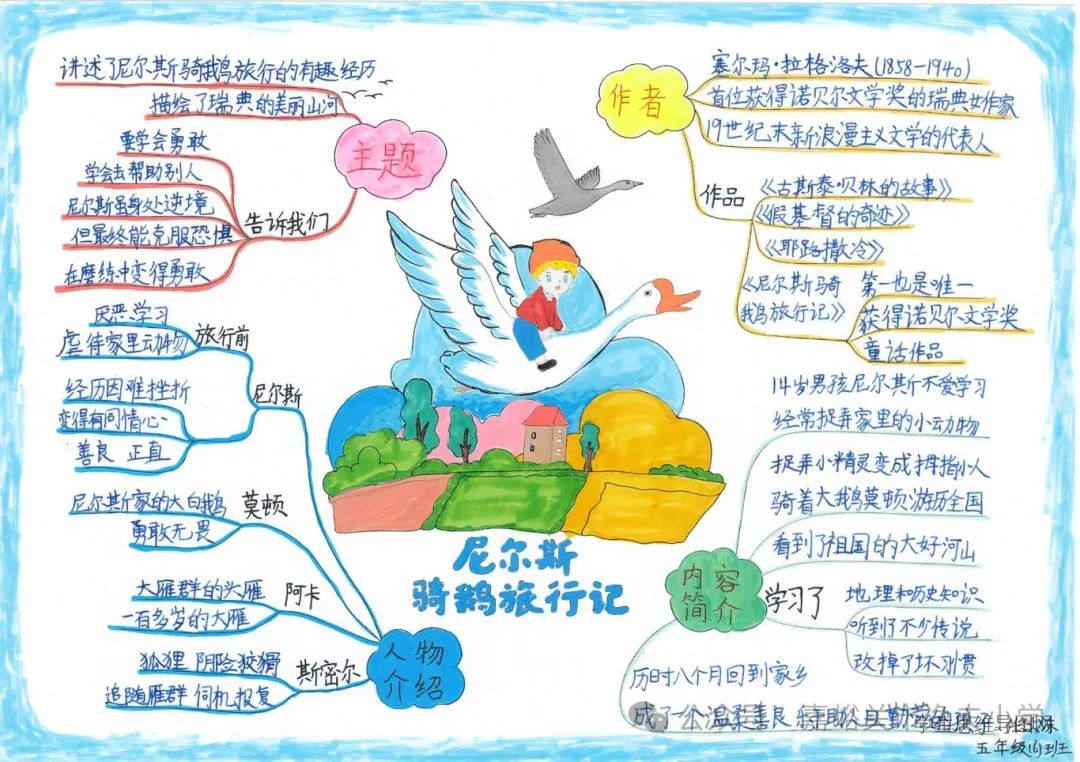 尼尔斯
骑鹅旅行记
主题
讲述了尼尔斯骑鹅旅行的有趣经历
描绘了瑞典的美丽山河
告诉我们
要学会勇敢
学会去帮助别人
尼尔斯虽身处逆境
但最终能克服恐惧
在磨练中变得勇敢
作者
塞尔玛·拉格洛夫(1858-1940)
首位获得诺贝尔文学奖的瑞典女作家
19世纪末新浪漫主义文学的代表人
作品
《古斯泰·贝林的故事》
《假基督的奇迹》
《耶路撒冷》
《尼尔斯骑
鹅旅行记》
第一也是唯一
获得诺贝尔文学奖
童话作品
人物
介绍
尼尔斯
旅行前
厌恶学习
虐待家里动物
经历困难挫折
变得有同情心
善良 正直
莫顿
尼尔斯家的大白鹅
勇敢无畏
阿卡
大雁群的头雁
一百多岁的大雁
斯密尔
狐狸 阴险狡猾
追随雁群 伺机报复
内容
简介
14岁男孩尼尔斯不爱学习
经常捉弄家里的小动物
捉弄小精灵变成拇指小人
骑着大鹅莫顿游历全国
看到了祖国的大好河山
学习了
地理和历史知识
听到了不少传说
改掉了坏习惯
历时八个月回到家乡
成了一个温柔善良 乐于助人且勤劳的
五年级(6)班